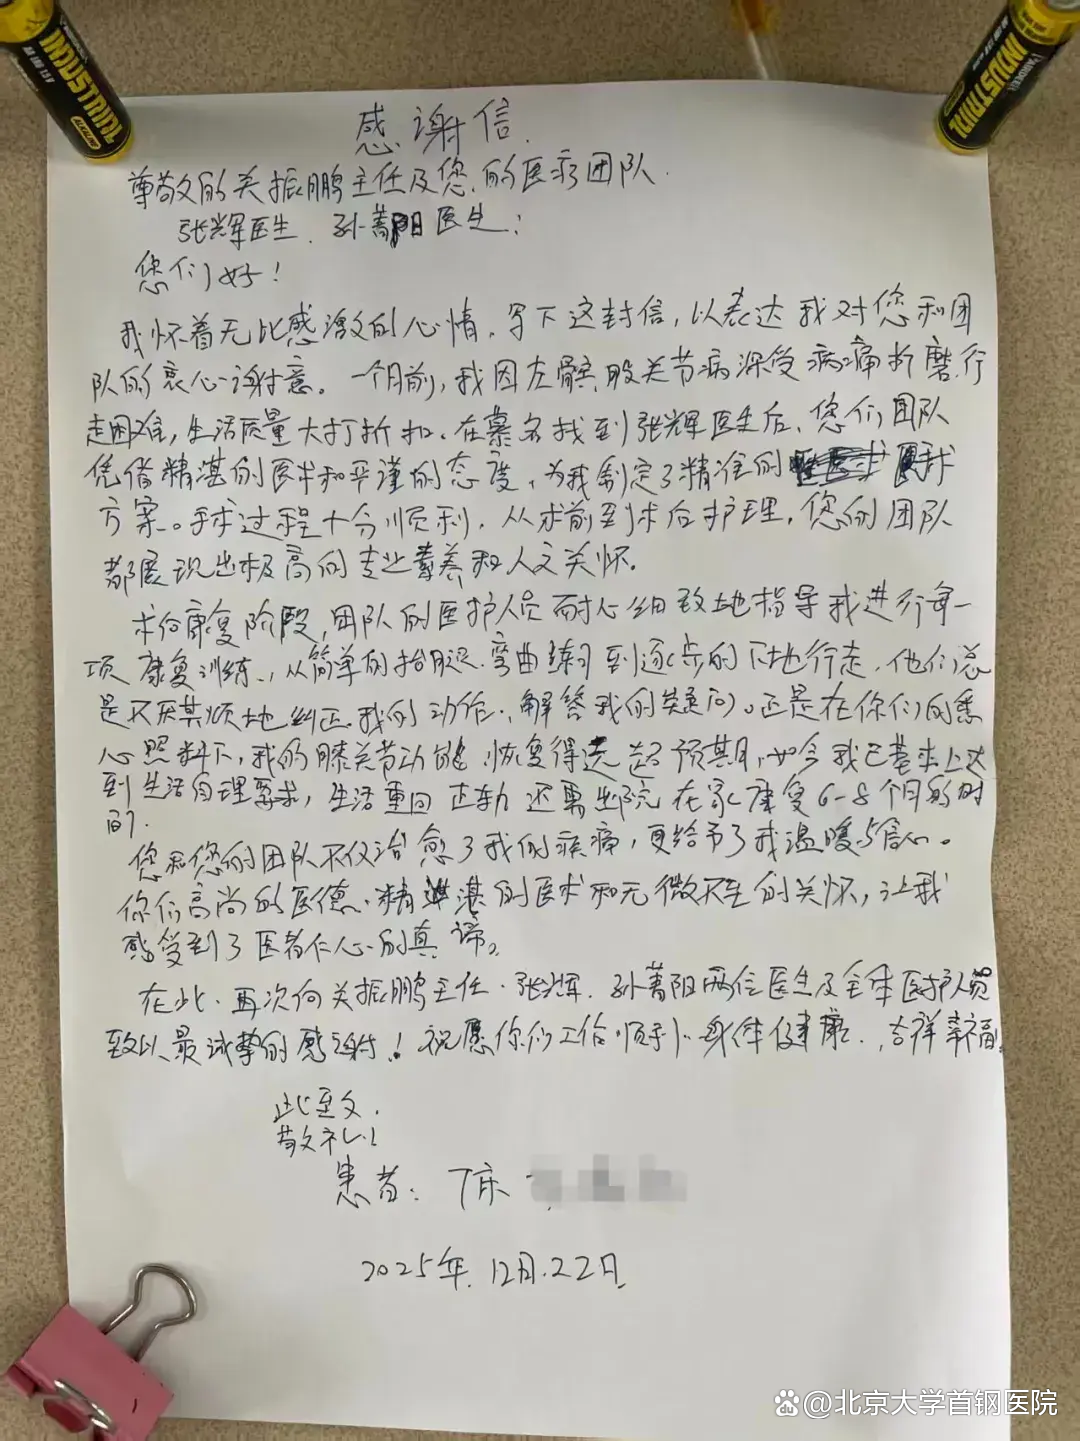 INDUSTRIAL
INDUSTRIAL
感谢信
尊敬的关振鹏主任及您的医疗团队
张辉医生、孙菁阳医生:
您们好!
我怀着无比感激的心情,写下这封信,以表达我对您和团
队的衷心谢意。一个月前,我因左髌股关节病深受病痛折磨,行
走困难,生活质量大打折扣。在慕名找到张辉医生后、您们团队
凭借精湛的医术和严谨的态度,为我制定了精准的
方案。手术过程十分顺利,从术前到术后护理,您的团队
都展现出极高的专业素养和人文关怀。
术后康复阶段,团队的医护人员耐心细致地指导我进行每一
项康复训练、从简单的抬腿、弯曲练习到逐步的下地行走,他们总
是不厌其烦地纠正我的动作、解答我的疑问。还是在你们的悉
心照料下,我的膝关节功能恢复得远超预期,如今我已基本上达
到生活自理要求,生活重回正轨还需出院在家康复6-8个月的时
间.
您和您的团队不仅治愈了我的疾痛,更给予了我温暖与信心。
你们高尚的医德、精湛的医术和无微不至的关怀,让我
感受到了医者仁心的真谛。
在此、再次向关振鹏主任、张辉、孙菁阳两位医生及全体医护人员
致以最诚挚的感谢!祝愿你们工作顺利、身体健康、吉祥幸福。
此至文,
敬礼!
患者:陈
2025年12月22日
@北京大学首钢医院